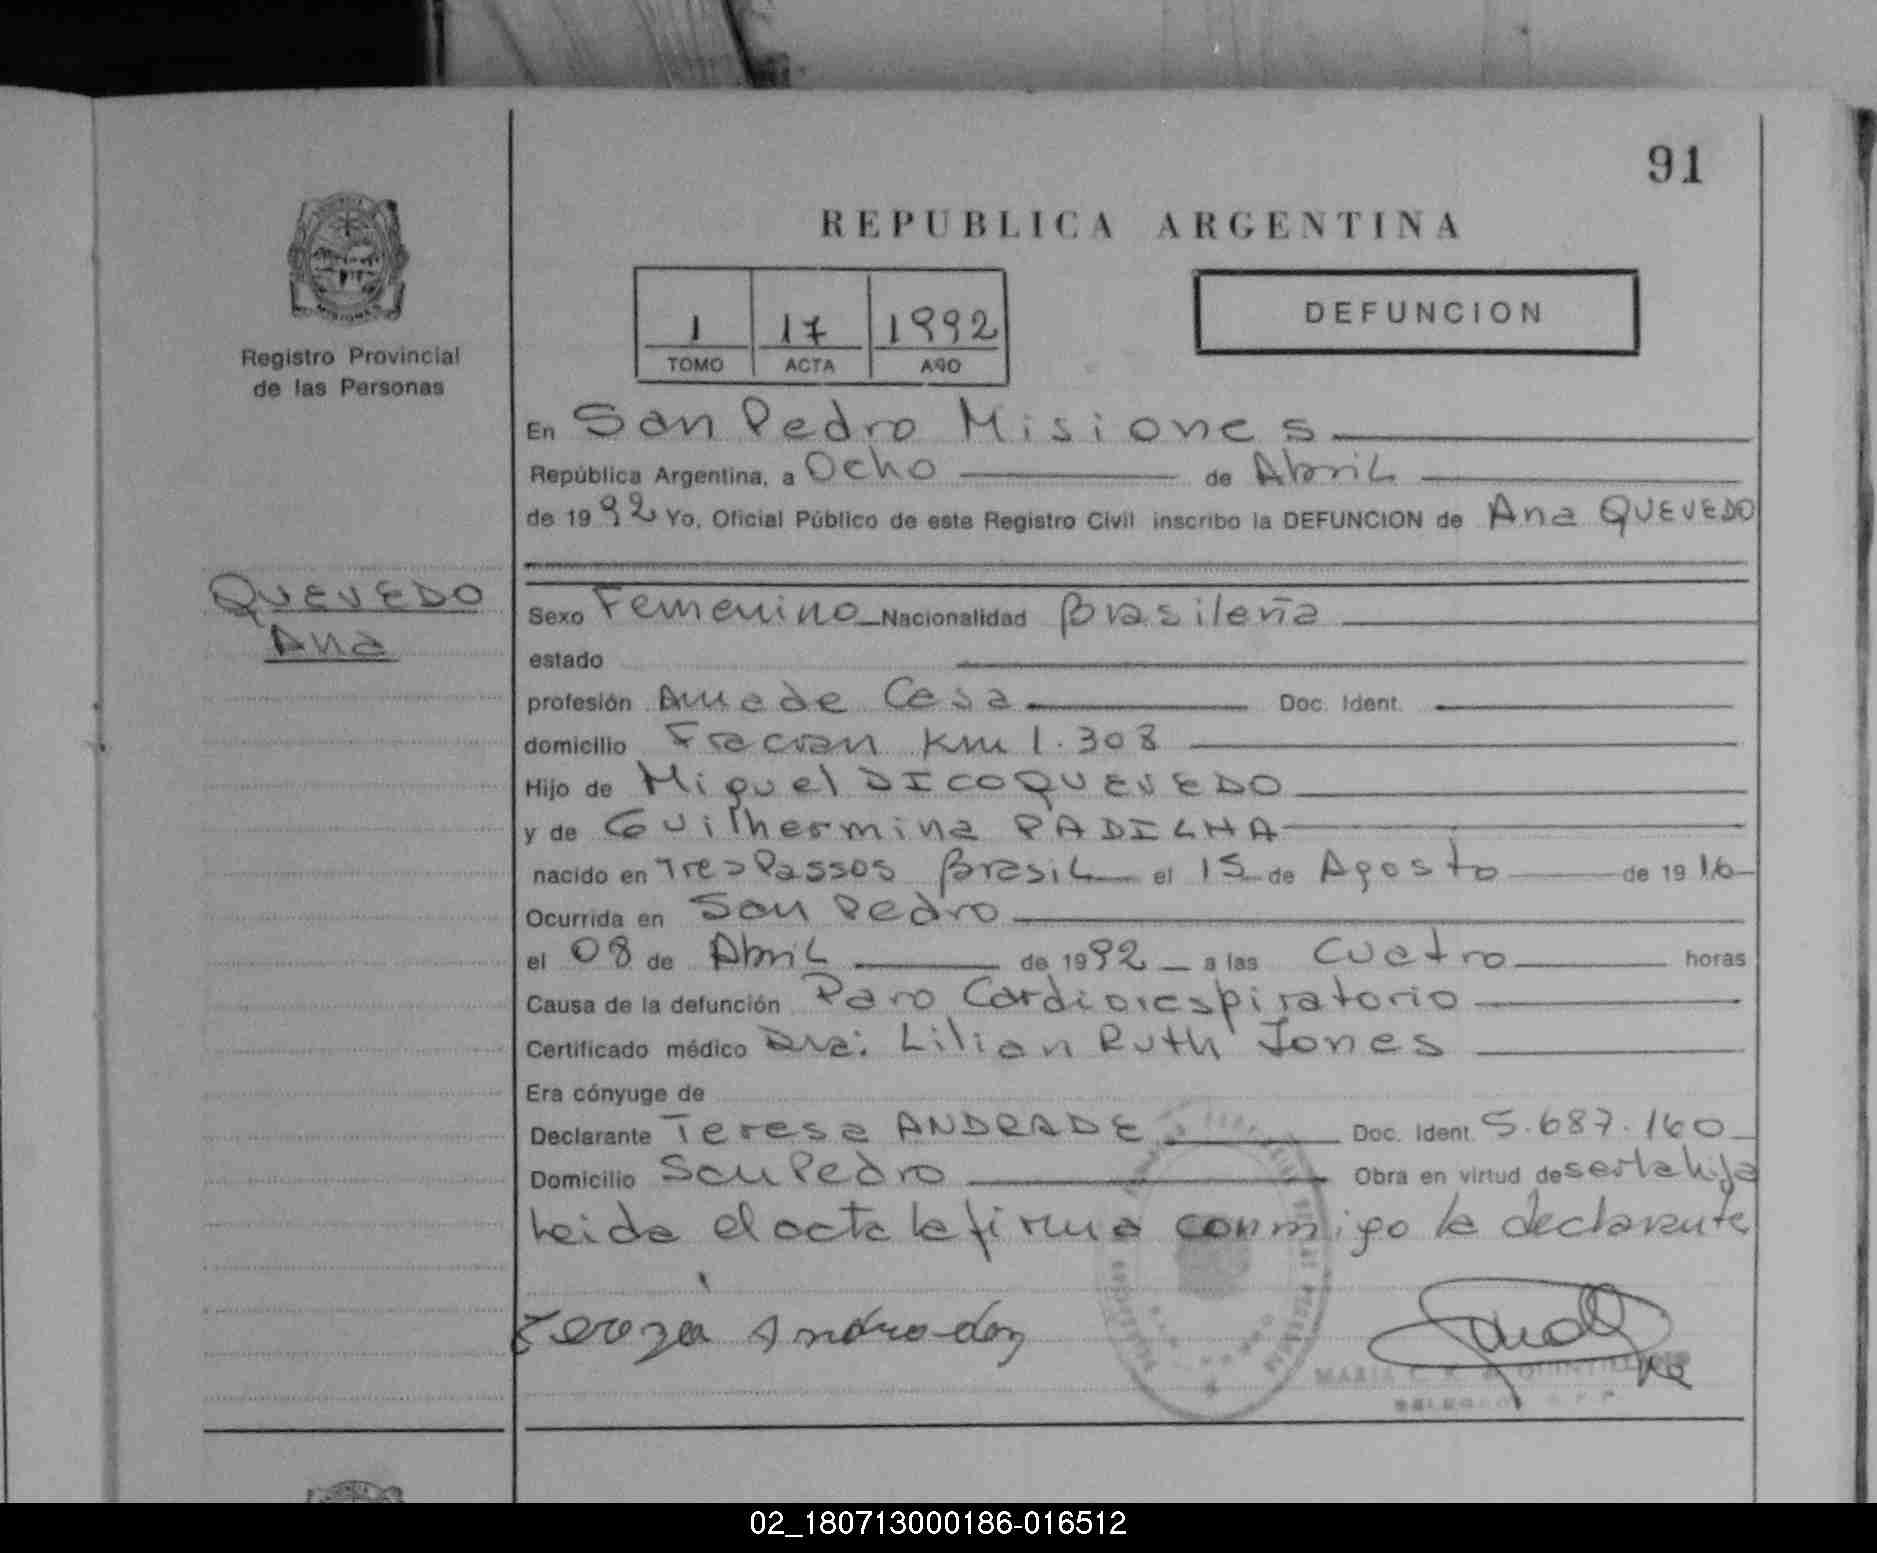 91
REPUBLICA ARGENTINA
Registro Provincial
de las Personas
1 17 1992
TOMO ACTA AÑO
DEFUNCION
En San Pedro Misiones
República Argentina, a Ocho de Abril
de 1992 Yo, Oficial Público de este Registro Civil inscribo la DEFUNCION de Ana QUEVEDO
QUEVEDO
Ana
Sexo Femenino Nacionalidad Brasileña
estado
profesión Ama de Casa Doc. Ident.
domicilio Fracran Km 1.308
Hijo de Miguel DICO QUEVEDO
y de Guilhermina PADILHA
nacido en Tres Passos Brasil el 15 de Agosto de 1916
Ocurrida en San Pedro
el 08 de Abril de 1992 a las Cuatro horas
Causa de la defunción Paro Cardiorespiratorio
Certificado médico Dra: Lilian Ruth Jones
Era cónyuge de
Declarante Teresa ANDRADE Doc. Ident. 5.687.160
Domicilio San Pedro Obra en virtud de ser la hija
Leida el acta la firma conmigo la declarante
02_180713000186-016512